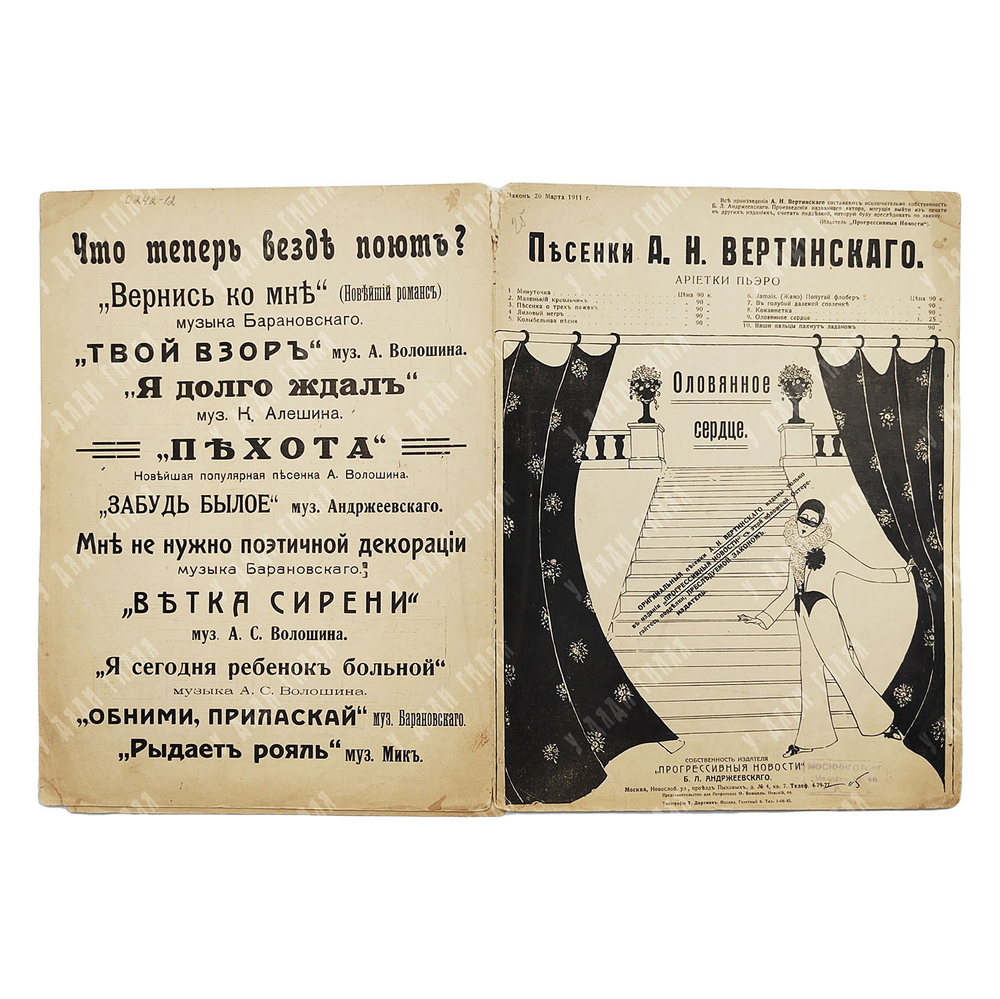 0242-12
Что теперь вездѣ поютъ?
„Вернись ко мнѣ“ (Новѣйшій романсъ)
музыка Барановскаго.
„ТВОЙ ВЗОРЪ“ муз. А. Волошина.
„Я долго ждалъ“
муз. К. Алешина.
„ПѢХОТА“
Новѣйшая популярная пѣсенка А. Волошина.
„ЗАБУДЬ БЫЛОЕ“ муз. Андржеевскаго.
Мнѣ не нужно поэтичной декораціи
музыка Барановскаго.
„ВѢТКА СИРЕНИ“
муз. А. С. Волошина.
„Я сегодня ребенокъ больной“
музыка А. С. Волошина.
„ОБНИМИ, ПРИЛАСКАЙ“ муз. Барановскаго.
„Рыдаетъ рояль“ муз. Микъ.
Законъ 20 Марта 1911 г.
Всѣ произведенія А. Н. Вертинскаго составляютъ исключительно собственность
Б. Л. Андржеевскаго. Произведенія названнаго автора, могущія выйти изъ печати
въ другихъ изданіяхъ, считать поддѣлкой, которую буду преслѣдовать по закону.
(Издатель „Прогрессивныя Новости“).
ПѢСЕНКИ А. Н. ВЕРТИНСКАГО.
АРІЕТКИ ПЬЭРО
1. Минуточка Цѣна 90 к.
2. Маленькій креольчикъ „ 90 „
3. Пѣсенка о трехъ пажахъ „ 90 „
4. Лиловый негръ „ 90 „
5. Колыбельная пѣсня „ 90 „
6. Jamais. (Жамэ) Попугай флоберъ Цѣна 90 к.
7. Въ голубой далекой спаленкѣ „ 90 „
8. Кокаинетка „ 90 „
9. Оловянное сердце 1. 25 „
10. Ваши пальцы пахнутъ ладаномъ 90 „
Оловянное
сердце.
ОРИГИНАЛЬНЫЯ пѣсенки А. Н. ВЕРТИНСКАГО изданы только
въ изданіи „ПРОГРЕССИВНЫЯ НОВОСТИ“ съ этой обложкой. Остере-
гайтесь поддѣлки, ПРЕСЛѢДУЕМОЙ ЗАКОНОМЪ.
ИЗДАТЕЛЬ.
СОБСТВЕННОСТЬ ИЗДАТЕЛЯ
„ПРОГРЕССИВНЫЯ НОВОСТИ“
Б. Л. АНДРЖЕЕВСКАГО.
Москва, Новослоб. ул., проѣздъ Пыховыхъ, д. № 4, кв. 7. Телеф. 4-79-77.
Типографія
Москва, Газетный